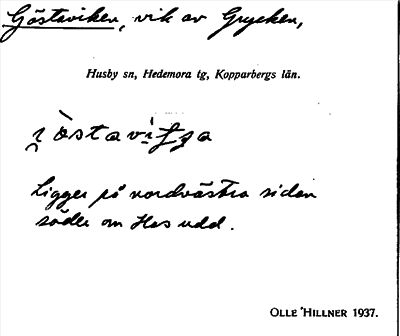 Göstaviken, vik av Grycken,
Husby sn, Hedemora tg, Kopparbergs län.
Ligger på nordvästra sidan
söder om Hos udd.
OLLE HILLNER 1937.